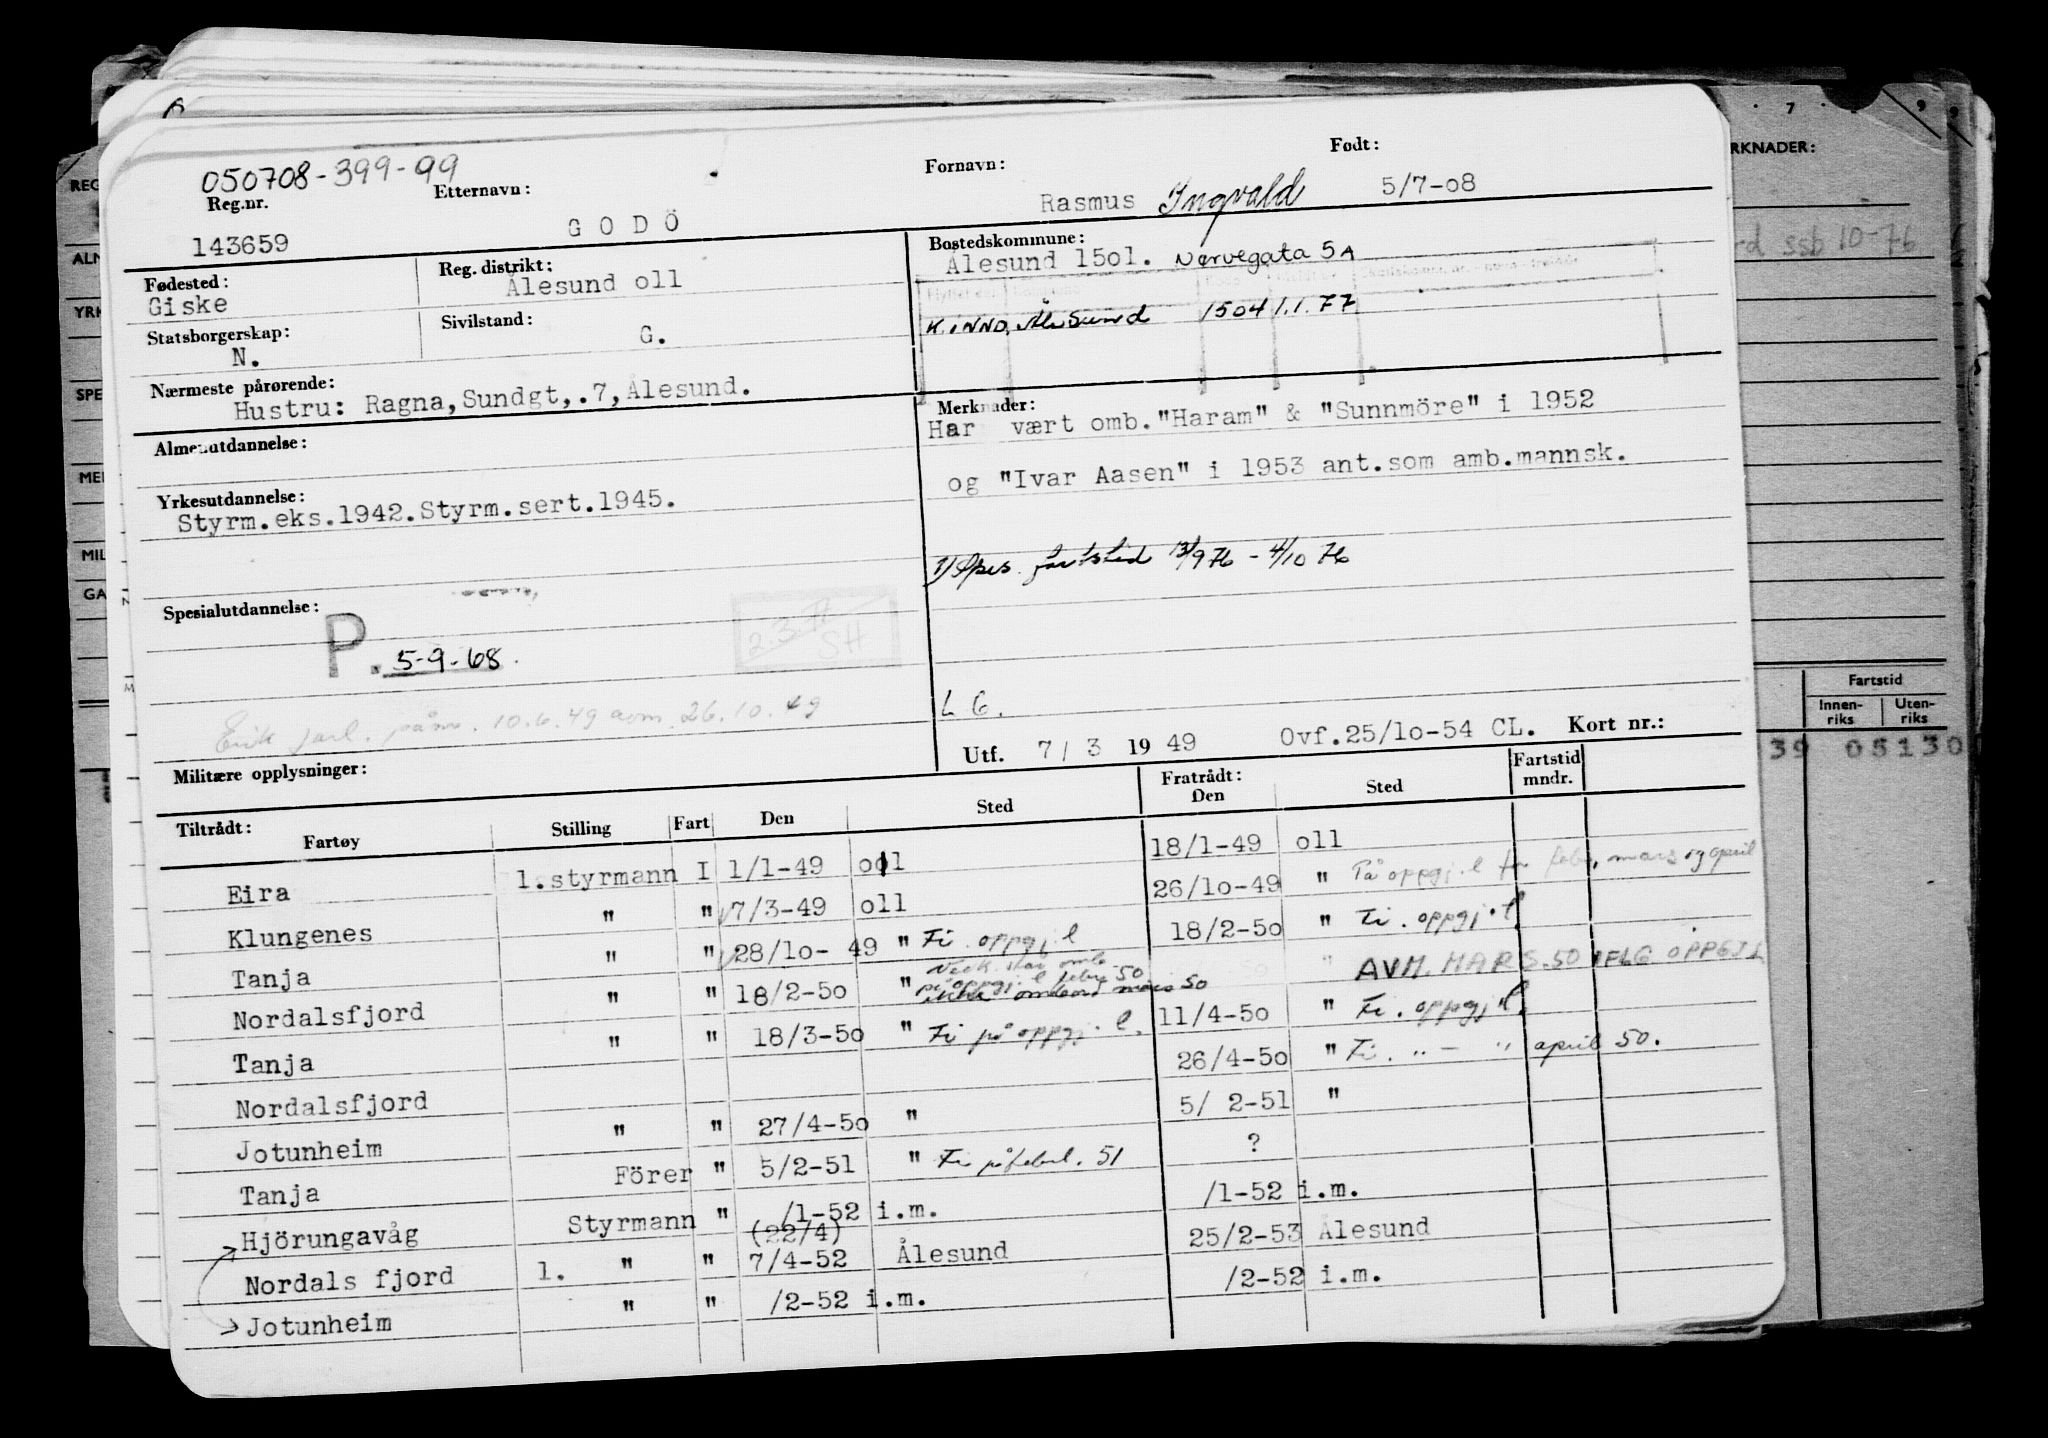 050708-399-99
Reg.nr. Etternavn: Fornavn: Født:
143659 GODÖ Rasmus Ingvald 5/7-08
Fødested: Reg. distrikt: Bostedskommune:
Giske Ålesund oll Ålesund 15ol. Nørvegata 5A
Statsborgerskap: Sivilstand:
N. G. Ålesund 1504 1.1.77
Nærmeste pårørende:
Hustru: Ragna,Sundgt,.7,Ålesund.
Merknader:
Har vært omb."Haram" & "Sunnmöre" i 1952
og "Ivar Aasen" i 1953 ant.som amb.mannsk.
Almenutdannelse:
Yrkesutdannelse:
Styrm.eks.1942.Styrm.sert.1945.
fartstid 13/9 76 - 4/10 76
Spesialutdannelse:
P. 5-9-68.
SH
Erik Jarl. påm. 10.6.49 avm. 26.10.49
L 6.
Utf. 7/3 1949 Ovf.25/lo-54 CL. Kort nr.:
Militære opplysninger:
Tiltrådt: Fratrådt:
Fartøy Stilling Fart Den Sted Den Sted Fartstid mndr.
Eira 1.styrmann I 1/1-49 oll 18/1-49 oll
Klungenes " " 7/3-49 oll 26/lo-49 " På oppgj. l for febr, mars og april
Tanja " " 28/lo-49 " Fi. oppgj l 18/2-5o " Fi. oppgj. l
Nordalsfjord " " 18/2-5o " på oppgj. l febr. 50 ikke ombord mars 50 " AVM. MARS.50 IFLG OPPGJ L
Tanja " " 18/3-5o " Fi på oppgj. l. 11/4-5o " Fi. oppgj l.
Nordalsfjord 26/4-5o " Fi. " - " april 50.
Jotunheim " " 27/4-5o " 5/ 2-51 "
Tanja Förer " 5/2-51 " Fi på febr. 51 ?
Hjörungavåg Styrmann " /1-52 i.m. /1-52 i.m.
(22/4)
Nordals fjord 1. " " 7/4-52 Ålesund 25/2-53 Ålesund
Jotunheim " " /2-52 i.m. /2-52 i.m.
REG
ALN
YRK
SPE
MEI
MIL
GA
7 9
RKNADER:
ssb 10-76
Fartstid
Innen-riks Uten-riks
39 05130